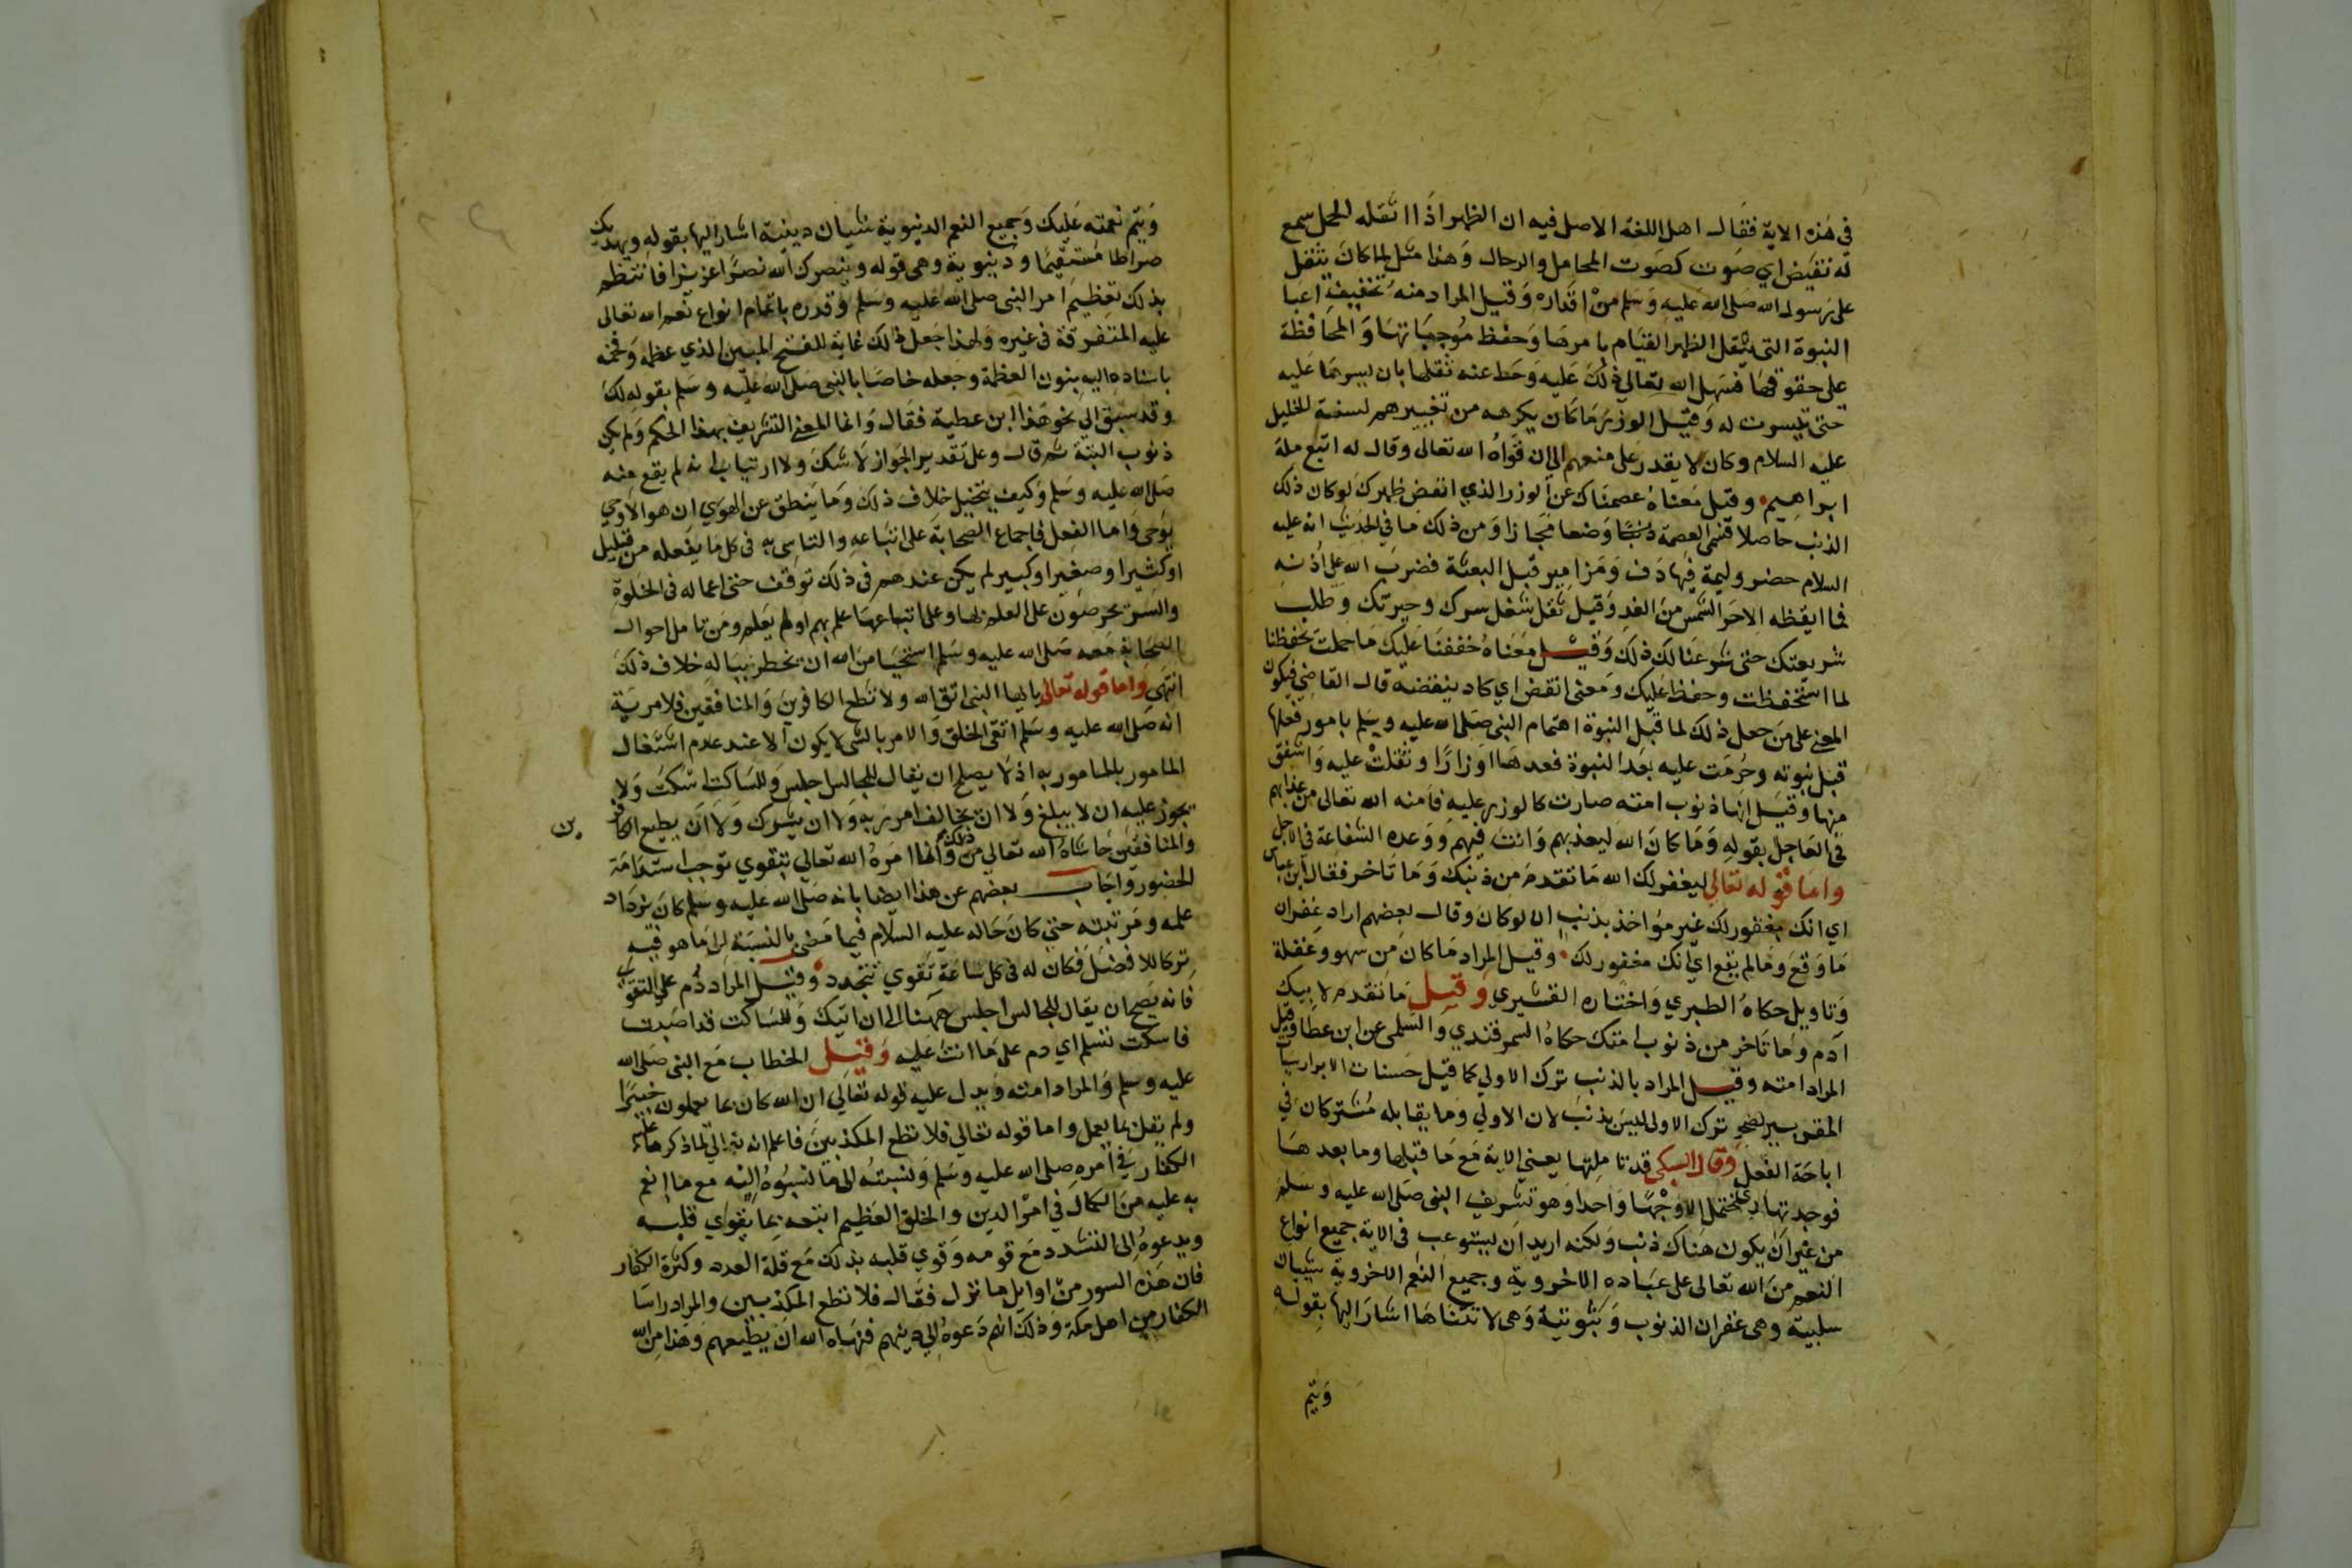 في هذه الاية فقال اهل اللغة الاصل فيه ان الظهر اذا اثقله الحمل سمع
له نقيض اي صوت كصوت المحامل والرحال وهذا مثل لما كان يثقل
على رسول الله صلى الله عليه وسلم من اقداره وقيل المراد منه تخفيف اعبا
النبوة التي يثقل الظهر القيام بامرها وحفظ موجباتها والمحافظة
على حقوقها فسهل الله تعالى ذلك عليه وحط عنه ثقلها بان يسرها عليه
حتى تيسرت له وقيل الوزر ما كان يكرهه من تغييرهم لسنة الخليل
عليه السلام وكان لا يقدر على منعهم الى ان قواه الله تعالى وقال له اتبع ملة
ابراهيم وقيل معناه عصمناك عن الوزر الذي انقض ظهرك لو كان ذلك
الذنب حاصلا فسمى العصمة وضعا مجازا ومن ذلك ما في الحديث انه عليه
السلام حضر وليمة فيها دف ومزامير قبل البعثة فضرب الله على اذنه
فما ايقظه الا حر الشمس من الغد وقيل ثقل شغل سرك وحيرتك وطلب
شريعتك حتى شرعنا لك ذلك وقيل معناه خففنا عليك ما حملت بحفظنا
لما استحفظت وحفظ عليك ومعنى انقض اي كاد ينقضه قال القاضي فيكون
المعنى على من جعل ذلك لما قبل النبوة اهتمام النبي صلى الله عليه وسلم بامور فعلها
قبل نبوته وحرمت عليه بعد النبوة فعدها اوزارا وثقلت عليه واشفق
منها وقيل انها ذنوب امته صارت كالوزر عليه فامنه الله تعالى من عذابهم
في العاجل بقوله وما كان الله ليعذبهم وانت فيهم ووعده الشفاعة في الاجل
واما قوله تعالى ليغفر لك الله ما تقدم من ذنبك وما تاخر فقال ابن عباس
اي انك مغفور لك غير مؤاخذ بذنب ان لو كان وقال بعضهم اراد غفران
ما وقع وما لم يقع اي انك مغفور لك وقيل المراد ما كان من سهو وغفلة
وتاويل حكاه الطبري واختاره القشيري وقيل ما تقدم لابيك
ادم وما تاخر من ذنوب امتك حكاه السمرقندي والسلمي عن ابن عطا وقيل
المراد امته وقيل المراد بالذنب ترك الاولى كما قيل حسنات الابرار سيات
المقربين وترك الاولى ليس بذنب لان الاولى وما يقابله مشتركان في
اباحة الفعل وقال السبكي قد تاملتها يعني الاية مع ما قبلها وما بعدها
فوجدتها لا تحتمل الا وجها واحدا وهو تشريف النبي صلى الله عليه وسلم
من غير ان يكون هناك ذنب ولكنه اريد ان يستوعب في الاية جميع انواع
النعم من الله تعالى على عباده الاخروية وجميع النعم الاخروية شيئان
سلبية وهي غفران الذنوب وثبوتية وهي لا تتناها اشار اليها بقوله
ويتم
ويتم نعمته عليك وجميع النعم الدنيوية شيان دينية اشار اليها بقوله ويهديك
صراطا مستقيما ودنيوية وهي قوله وينصرك الله نصرا عزيزا فانتظم
بذلك تعظيم امر النبي صلى الله عليه وسلم وقدره باتمام انواع نعم الله تعالى
عليه المتفرقة في غيره ولهذا جعل ذلك غاية للفتح المبين الذي عظمه وفخمه
باسناده اليه بنون العظمة وجعله خاصا بالنبي صلى الله عليه وسلم بقوله لك
وقد سبق الى نحو هذا ابن عطية فقال وانما المعنى التشريف بهذا الحكم ولم يكن
ذنوب البتة ثم قال وعلى تقدير الجواز لا شك ولا ارتياب انه لم يقع منه
صلى الله عليه وسلم وكيف يتخيل خلاف ذلك وما ينطق عن الهوى ان هو الا وحي
يوحى واما الفعل فاجماع الصحابة على اتباعه والتاسي به في كل ما يفعله من قليل
او كثير او صغير او كبير لم يكن عندهم في ذلك توقف حتى اعماله في الخلوة
والسر يحرصون على العلم بها وعلى اتباعها علم بهم او لم يعلم ومن تامل احوال
الصحابة معه صلى الله عليه وسلم استحيا من الله ان يخطر بباله خلاف ذلك
انتهى واما قوله تعالى يا ايها النبي اتق الله ولا تطع الكافرين والمنافقين فلا مرية
انه صلى الله عليه وسلم اتقى الخلق والامر بالشي لا يكون الا عند عدم اشتغال
المامور بالمامور به اذ لا يصلح ان يقال للجالس اجلس وللساكت اسكت ولا
يجوز عليه ان لا يبلغ ولا ان يخالف امر ربه ولا ان يشرك ولا ان يطيع الكافرين
والمنافقين حاشاه الله تعالى من ذلك وانما امره الله تعالى بتقوى توجب استدامة
الحضور واجاب بعضهم عن هذا ايضا بانه صلى الله عليه وسلم كان يزداد
علمه ومرتبته حتى كان حاله عليه السلام فيما مضى بالنسبة الى ما هو فيه
تركا للافضل فكان له في كل ساعة تقوى تتجدد وقيل المراد دم على التقوى
فانه يصح ان يقال للجالس اجلس ههنا الى ان اتيك وللساكت قد اصبت
فاسكت تسلم اي دم على ما انت عليه وقيل الخطاب مع النبي صلى الله
عليه وسلم والمراد امته ويدل عليه قوله تعالى ان الله كان بما يعملون خبيرا
ولم يقل بما يعمل واما قوله تعالى فلا تطع المكذبين فاعلم انه تعالى لما ذكر ما عليه
الكفار في امره صلى الله عليه وسلم ونسبته الى ما نسبوه اليه مع ما انعم
به عليه من الكمال في امر الدين والخلق العظيم اتبعه بما يقوي قلبه
ويدعوه الى التشدد مع قومه وقوى قلبه بذلك مع قلة العدد وكثرة الكفار
فان هذه السور من اوايل ما نزل فقال فلا تطع المكذبين والمراد راسا
الكفار من اهل مكة وذلك انهم دعوه الى دينهم فنهاه الله ان يطيعهم وهذا من الله